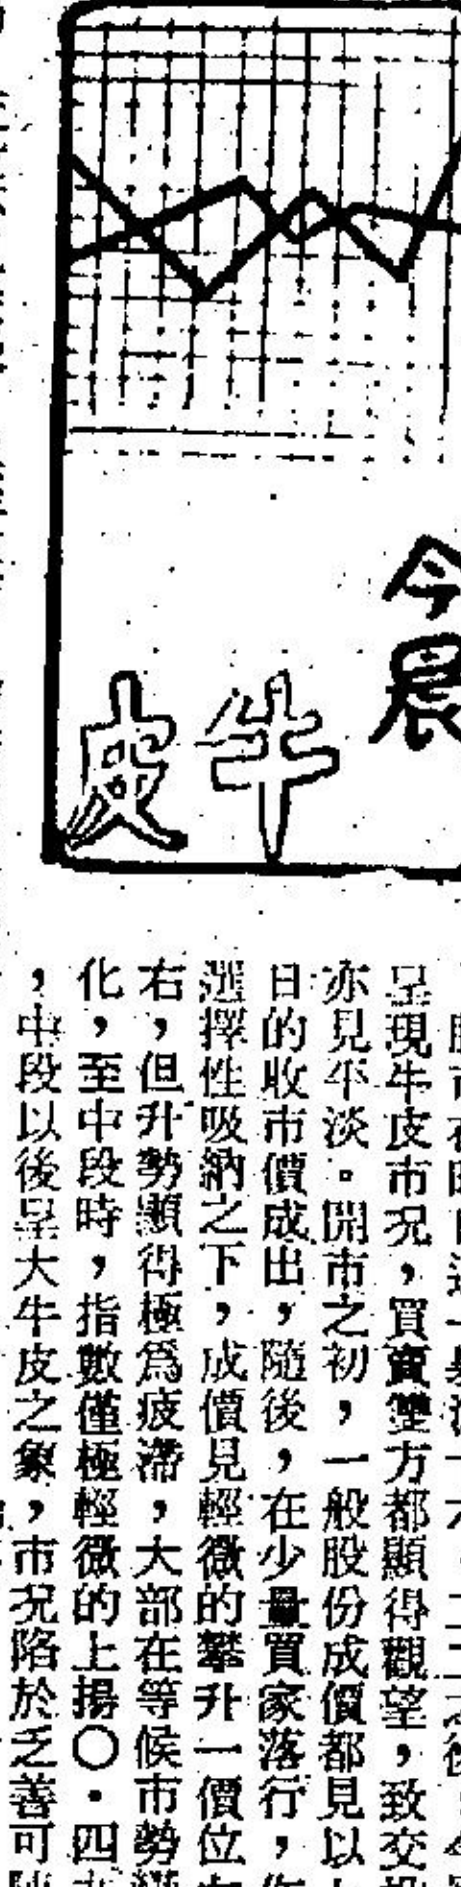 今晨
牛皮
呈現牛皮市況，買賣雙方都顯得觀望，致交
亦見平淡。開市之初，一般股份成價都見以
日的收市價成出，隨後，在少量買家落行，
選擇性吸納之下，成價見輕微的攀升一價位
右，但升勢顯得極爲疲滯，大部在等候市勢
化，至中段時，指數僅極輕微的上揚〇·四
，中段以後呈大牛皮之象，市況陷於乏善可